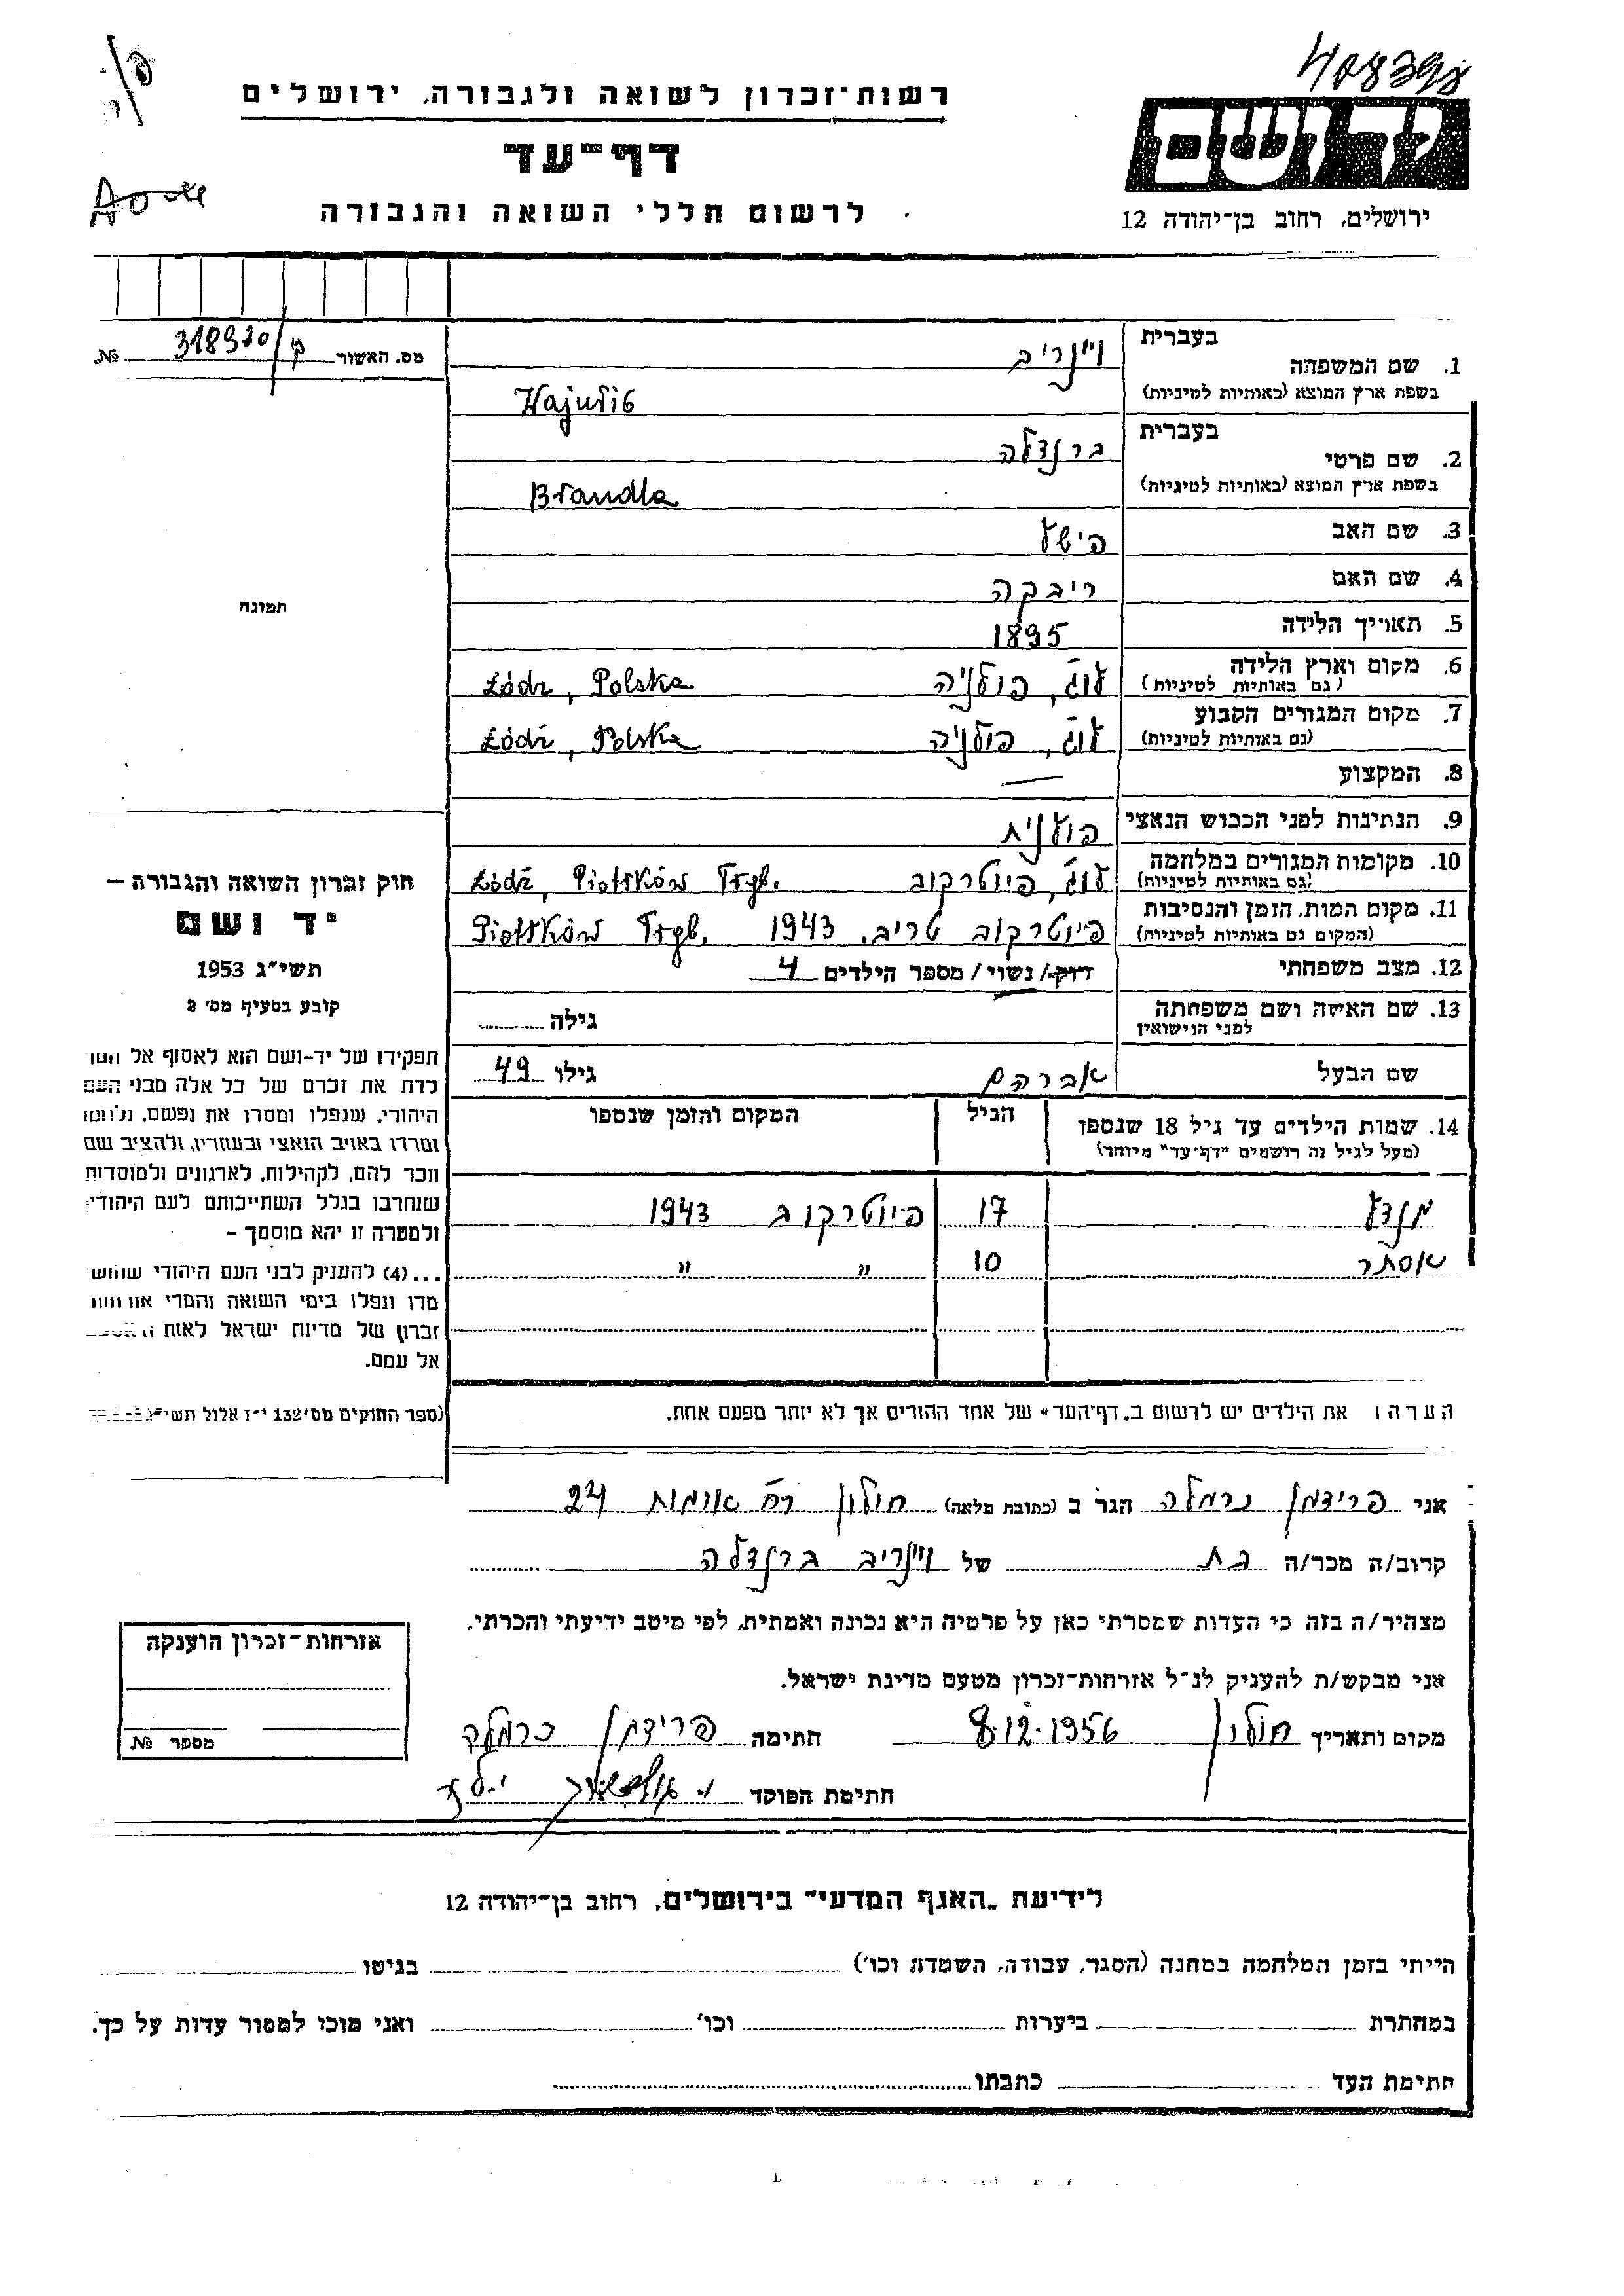 408398
רשות־זכרון לשואה ולגבורה, ירושלים
דף־עד
לרשום חללי השואה והגבורה
יד ושם
ירושלים, רחוב בן־יהודה 12
מס. האשור ק/318320 №
1. שם המשפחה בעברית ויינריב
בשפת ארץ המוצא (באותיות לטיניות) Wajnrib
2. שם פרטי בעברית ברנדלה
בשפת ארץ המוצא (באותיות לטיניות) Brandla
3. שם האב
4. שם האם ריבקה
5. תאריך הלידה 1895
6. מקום וארץ הלידה (גם באותיות לטיניות) לודג', פולניה Łódź, Polska
7. מקום המגורים הקבוע (גם באותיות לטיניות) לודג', פולניה Łódź, Polska
8. המקצוע —
9. הנתינות לפני הכבוש הנאצי פולנית
10. מקומות המגורים במלחמה (גם באותיות לטיניות) לודג', פיוטרקוב Łódź, Piotrków Tryb.
11. מקום המות, הזמן והנסיבות (המקום גם באותיות לטיניות) פיוטרקוב טריב. 1943 Piotrków Tryb.
12. מצב משפחתי רווק/ נשוי/ מספר הילדים 4
13. שם האשה ושם משפחתה לפני הנישואין גילה
שם הבעל אברהם גילו 49
14. שמות הילדים עד גיל 18 שנספו (מעל לגיל זה רושמים "דף־עד" מיוחד) הגיל המקום והזמן שנספו
מנדל 17 פיוטרקוב 1943
אסתר 10 " "
הערה: את הילדים יש לרשום ב"דף־העד" של אחד ההורים אך לא יותר מפעם אחת.
תמונה
חוק זכרון השואה והגבורה –
יד ושם
תשי"ג 1953
קובע בסעיף מס' 2
תפקידו של יד-ושם הוא לאסוף אל המו
לדת את זכרם של כל אלה מבני העם
היהודי, שנפלו ומסרו את נפשם, נלחמו
ומרדו באויב הנאצי ובעוזריו, ולהציב שם
וזכר להם, לקהילות, לארגונים ולמוסדות
שנחרבו בגלל השתייכותם לעם היהודי
ולמטרה זו יהא מוסמך –
...(4) להעניק לבני העם היהודי שהוש
מדו ונפלו בימי השואה והמרי אזרחות
זכרון של מדינת ישראל לאות האספם
אל עמם.
(ספר החוקים מס' 132 י"ז אלול תשי"ג
אני פרידמן כרמלה הגר ב (כתובת מלאה) חולון רח' אומות 24
קרוב/ה מכר/ה בת של ויינריב ברנדלה
מצהיר/ה בזה כי העדות שמסרתי כאן על פרטיה היא נכונה ואמתית, לפי מיטב ידיעתי והכרתי.
אני מבקש/ת להעניק לנ"ל אזרחות־זכרון מטעם מדינת ישראל.
מקום ותאריך חולון 8.12.1956 חתימה פרידמן כרמלה
חתימת הפוקד
אזרחות־זכרון הוענקה
מספר №
לידיעת "האגף המדעי" בירושלים, רחוב בן־יהודה 12
הייתי בזמן המלחמה במחנה (הסגר, עבודה, השמדה וכו') בגיטו
במחתרת ביערות וכו' ואני מוכן למסור עדות על כך.
חתימת העד כתבתו